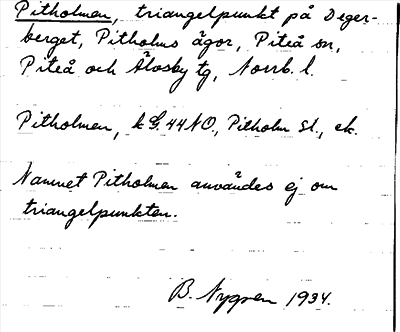 Pitholmen, triangelpunkt på Deger-
berget, Pitholms ägor, Piteå sn,
Piteå och Älvsby tg, Norrb. l.
Pitholmen, k G. 44 NO., Pitholm st., ek.
Namnet Pitholmen användes ej om
triangelpunkten.
B. Nygren 1934.